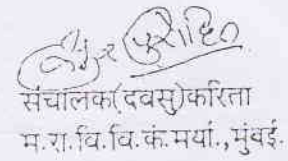 संचालक(दवसु)करिता
म.रा.वि.वि.कं.मर्या.,मुंबई.